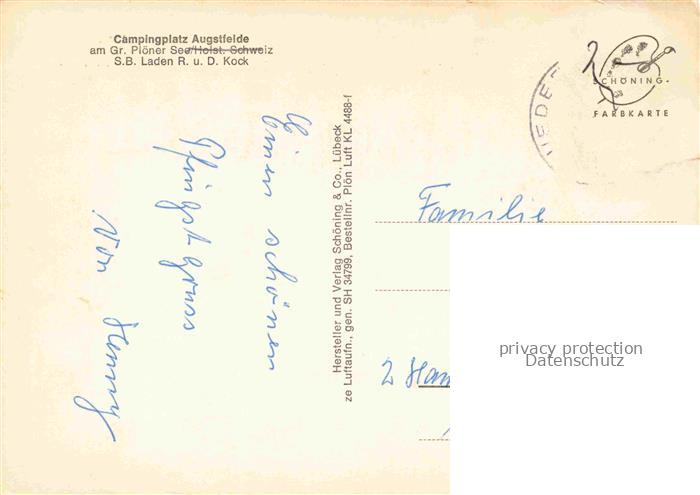 Campingplatz Augstfelde
am Gr. Plöner See/Holst. Schweiz
S.B. Laden R. u. D. Kock
Einen schönen
Pfingstgruss
Von Henny
Hersteller und Verlag Schöning & Co., Lübeck
ze Luftaufn., gen. SH 34799, Bestellnr. Plön Luft KL 4488-f
SCHÖNING
FARBKARTE
Familie
2 Ham
privacy protection
Datenschutz